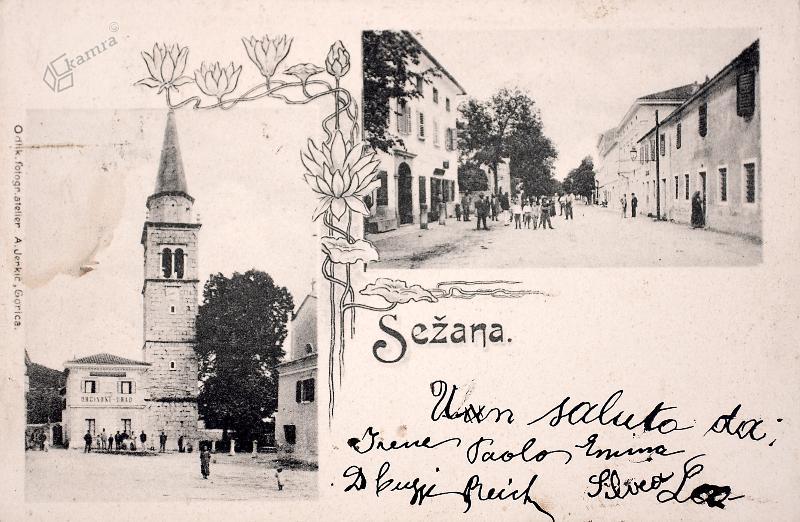 kamra
Odlik. fotogr. atelier A. Jerkič, Gorica.
OBČINSKI URAD
Sežana.
Un saluto da:
Irene Paolo Emma
Silvio